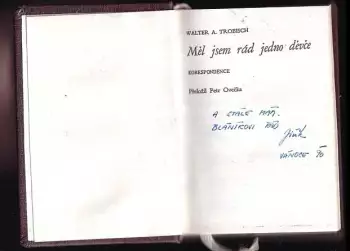 WALTER A. TROBISCH
Měl jsem rád jedno děvče
KORESPONDENCE
Přeložil Petr Ovečka
A STÁLE MÁŠ.
VÁNOCE